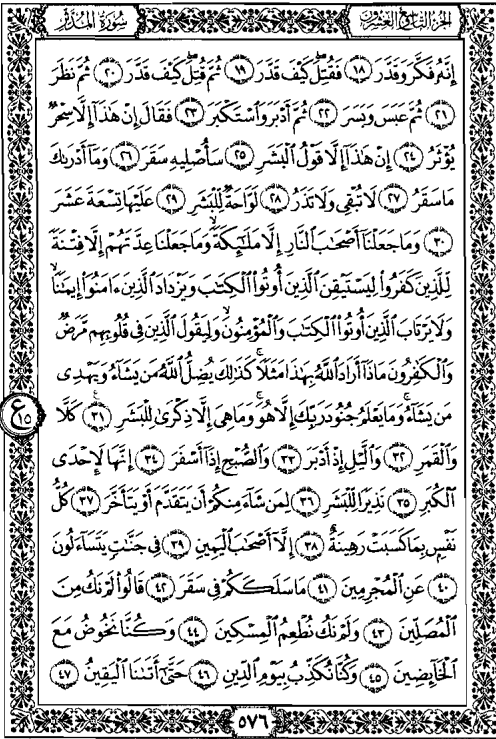 سُورَةُ المُدَّثِّر
الجزء التاسع والعشرون
إِنَّهُۥ فَكَّرَ وَقَدَّرَ ١٨ فَقُتِلَ كَيْفَ قَدَّرَ ١٩ ثُمَّ قُتِلَ كَيْفَ قَدَّرَ ٢٠ ثُمَّ نَظَرَ
٢١ ثُمَّ عَبَسَ وَبَسَرَ ٢٢ ثُمَّ أَدْبَرَ وَٱسْتَكْبَرَ ٢٣ فَقَالَ إِنْ هَٰذَآ إِلَّا سِحْرٌ
يُؤْثَرُ ٢٤ إِنْ هَٰذَآ إِلَّا قَوْلُ ٱلْبَشَرِ ٢٥ سَأُصْلِيهِ سَقَرَ ٢٦ وَمَآ أَدْرَىٰكَ
مَا سَقَرُ ٢٧ لَا تُبْقِى وَلَا تَذَرُ ٢٨ لَوَّاحَةٌ لِّلْبَشَرِ ٢٩ عَلَيْهَا تِسْعَةَ عَشَرَ
٣٠ وَمَا جَعَلْنَآ أَصْحَٰبَ ٱلنَّارِ إِلَّا مَلَٰٓئِكَةً ۙ وَمَا جَعَلْنَا عِدَّتَهُمْ إِلَّا فِتْنَةً
لِّلَّذِينَ كَفَرُوا۟ لِيَسْتَيْقِنَ ٱلَّذِينَ أُوتُوا۟ ٱلْكِتَٰبَ وَيَزْدَادَ ٱلَّذِينَ ءَامَنُوٓا۟ إِيمَٰنًا ۙ
وَلَا يَرْتَابَ ٱلَّذِينَ أُوتُوا۟ ٱلْكِتَٰبَ وَٱلْمُؤْمِنُونَ ۙ وَلِيَقُولَ ٱلَّذِينَ فِى قُلُوبِهِم مَّرَضٌ
وَٱلْكَٰفِرُونَ مَاذَآ أَرَادَ ٱللَّهُ بِهَٰذَا مَثَلًا ۚ كَذَٰلِكَ يُضِلُّ ٱللَّهُ مَن يَشَآءُ وَيَهْدِى
مَن يَشَآءُ ۚ وَمَا يَعْلَمُ جُنُودَ رَبِّكَ إِلَّا هُوَ ۚ وَمَا هِىَ إِلَّا ذِكْرَىٰ لِلْبَشَرِ ٣١ كَلَّا
ع ١٥
وَٱلْقَمَرِ ٣٢ وَٱلَّيْلِ إِذْ أَدْبَرَ ٣٣ وَٱلصُّبْحِ إِذَآ أَسْفَرَ ٣٤ إِنَّهَا لَإِحْدَى
ٱلْكُبَرِ ٣٥ نَذِيرًا لِّلْبَشَرِ ٣٦ لِمَن شَآءَ مِنكُمْ أَن يَتَقَدَّمَ أَوْ يَتَأَخَّرَ ٣٧ كُلُّ
نَفْسٍۭ بِمَا كَسَبَتْ رَهِينَةٌ ٣٨ إِلَّآ أَصْحَٰبَ ٱلْيَمِينِ ٣٩ فِى جَنَّٰتٍ يَتَسَآءَلُونَ
٤٠ عَنِ ٱلْمُجْرِمِينَ ٤١ مَا سَلَكَكُمْ فِى سَقَرَ ٤٢ قَالُوا۟ لَمْ نَكُ مِنَ
ٱلْمُصَلِّينَ ٤٣ وَلَمْ نَكُ نُطْعِمُ ٱلْمِسْكِينَ ٤٤ وَكُنَّا نَخُوضُ مَعَ
ٱلْخَآئِضِينَ ٤٥ وَكُنَّا نُكَذِّبُ بِيَوْمِ ٱلدِّينِ ٤٦ حَتَّىٰٓ أَتَىٰنَا ٱلْيَقِينُ ٤٧
٥٧٦